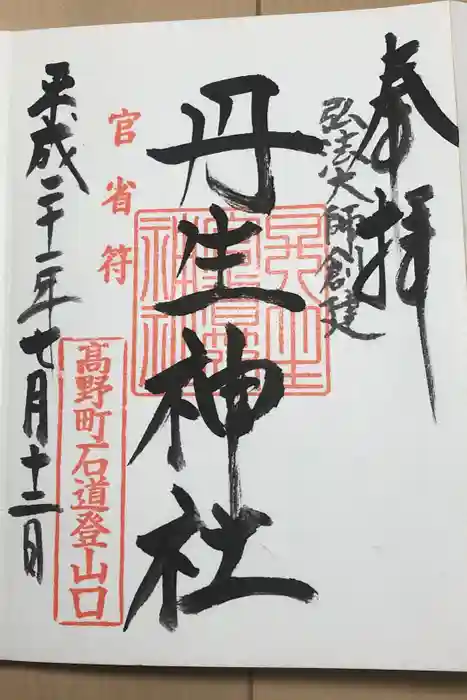 奉拝
弘法大師創建
丹生神社
官省符
高野町石道登山口
平成二十一年七月十二日